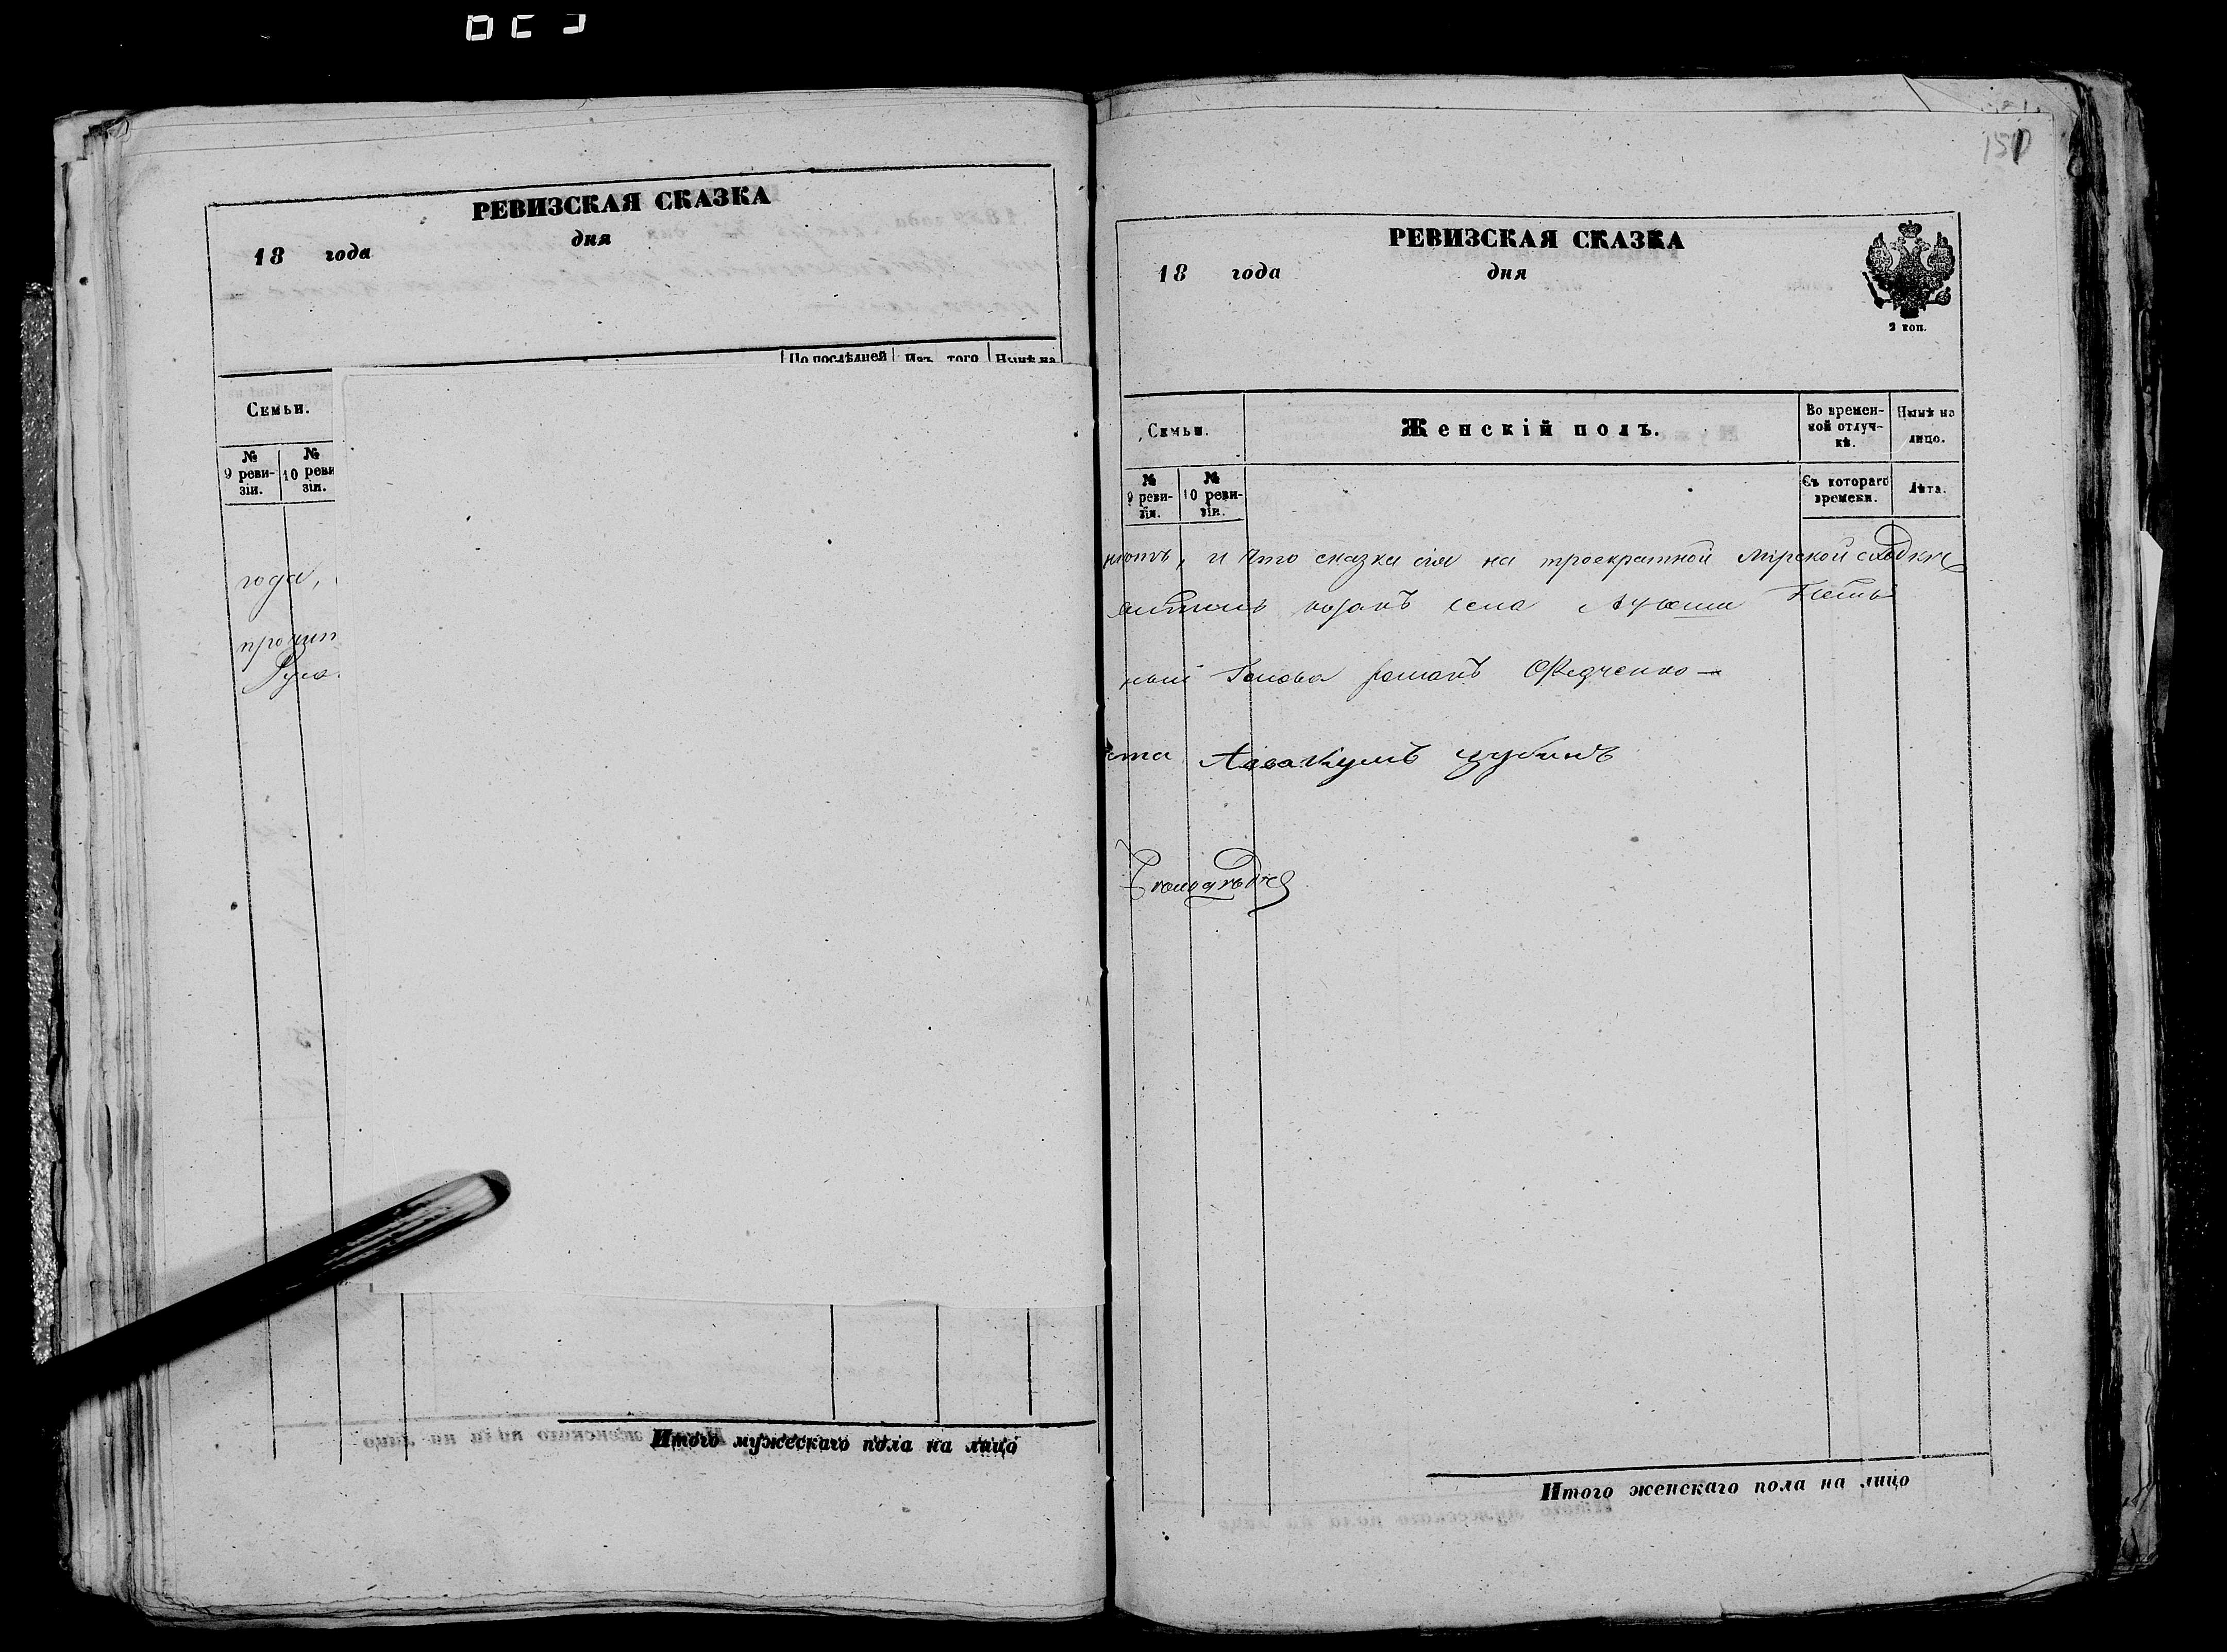 РЕВИЗСКАЯ СКАЗКА
18 года дня
По послѣдней Изъ того Нынѣ на
Семьи.
№ 9 реви-зіи. № 10 реви зіи.
года,
Итого мужескаго пола на лицо
151
РЕВИЗСКАЯ СКАЗКА
18 года дня
2 коп.
Семьи.
Женскій полъ.
Во времен-ной отлуч-кѣ.
Нынѣ на лицо.
№ 9 реви-зіи.
№ 10 реви-зіи.
Съ котораго времени.
Лѣта.
и что сказка сія на троекратной мірской сходкѣ
села
ный Голова Романъ Федченко
Аввакумъ
Итого женскаго пола на лицо